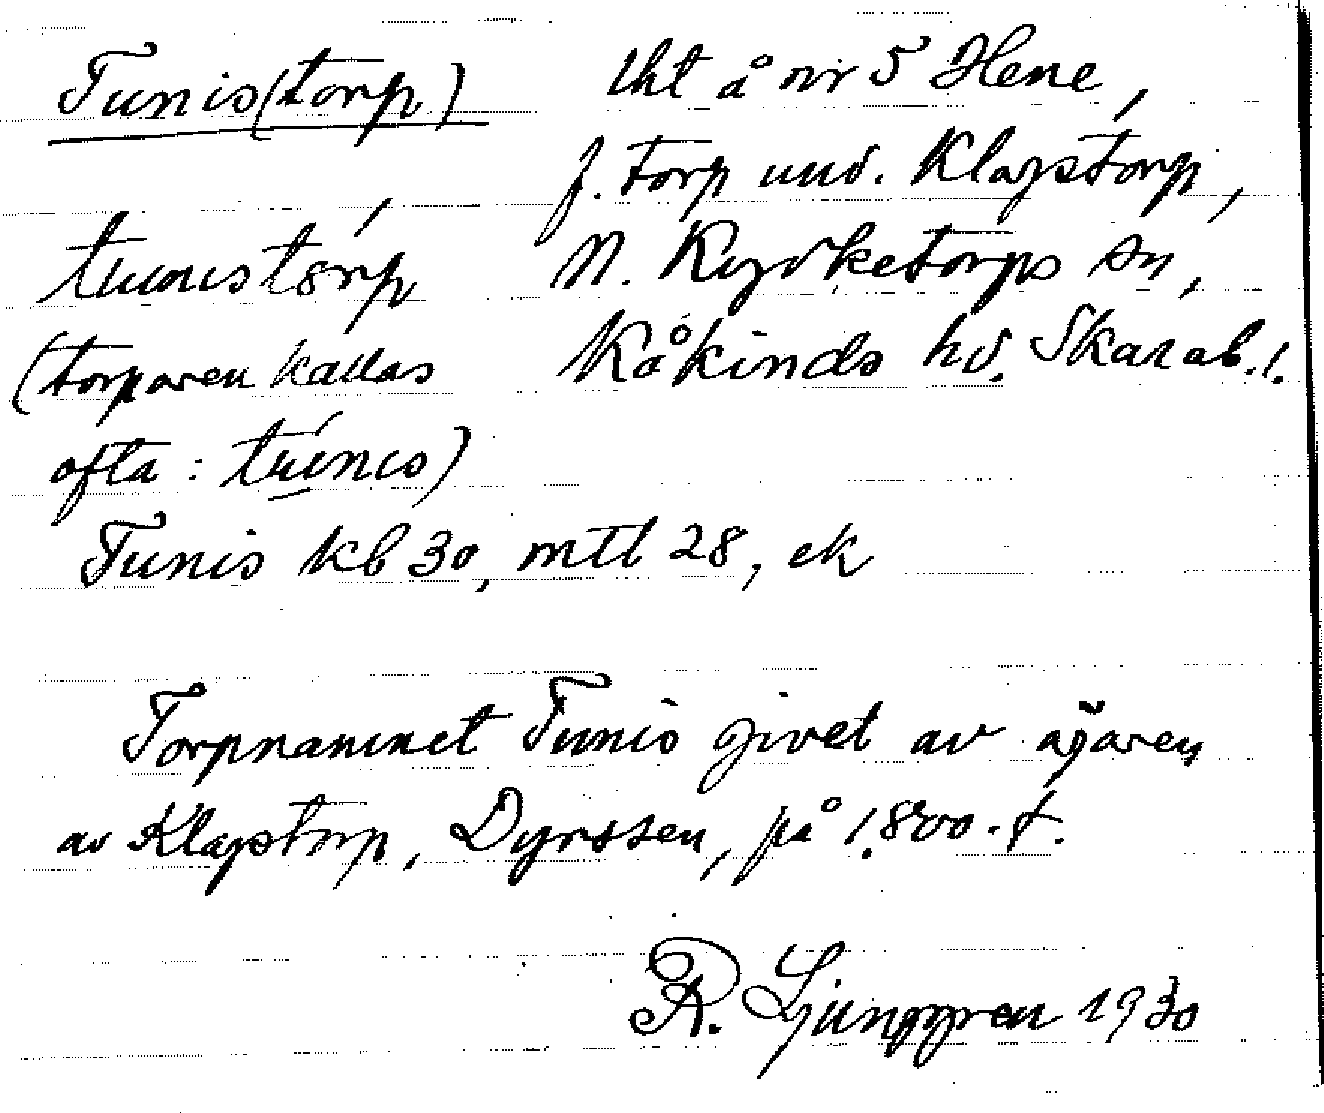 Tunis(torp) lht å nr 5 Hene,
f. torp und. Klagstorp,
tunistorp N. Kyrketorps sn,
(torparen kallas Kåkinds hd. Skarab. l.
ofta: túnis)
Tunis kb 30, mtl 28, ek
Torpnamnet Tunis givet av ägaren
av Klagstorp, Dyrssen, på 1800-t.
R. Ljunggren 1930